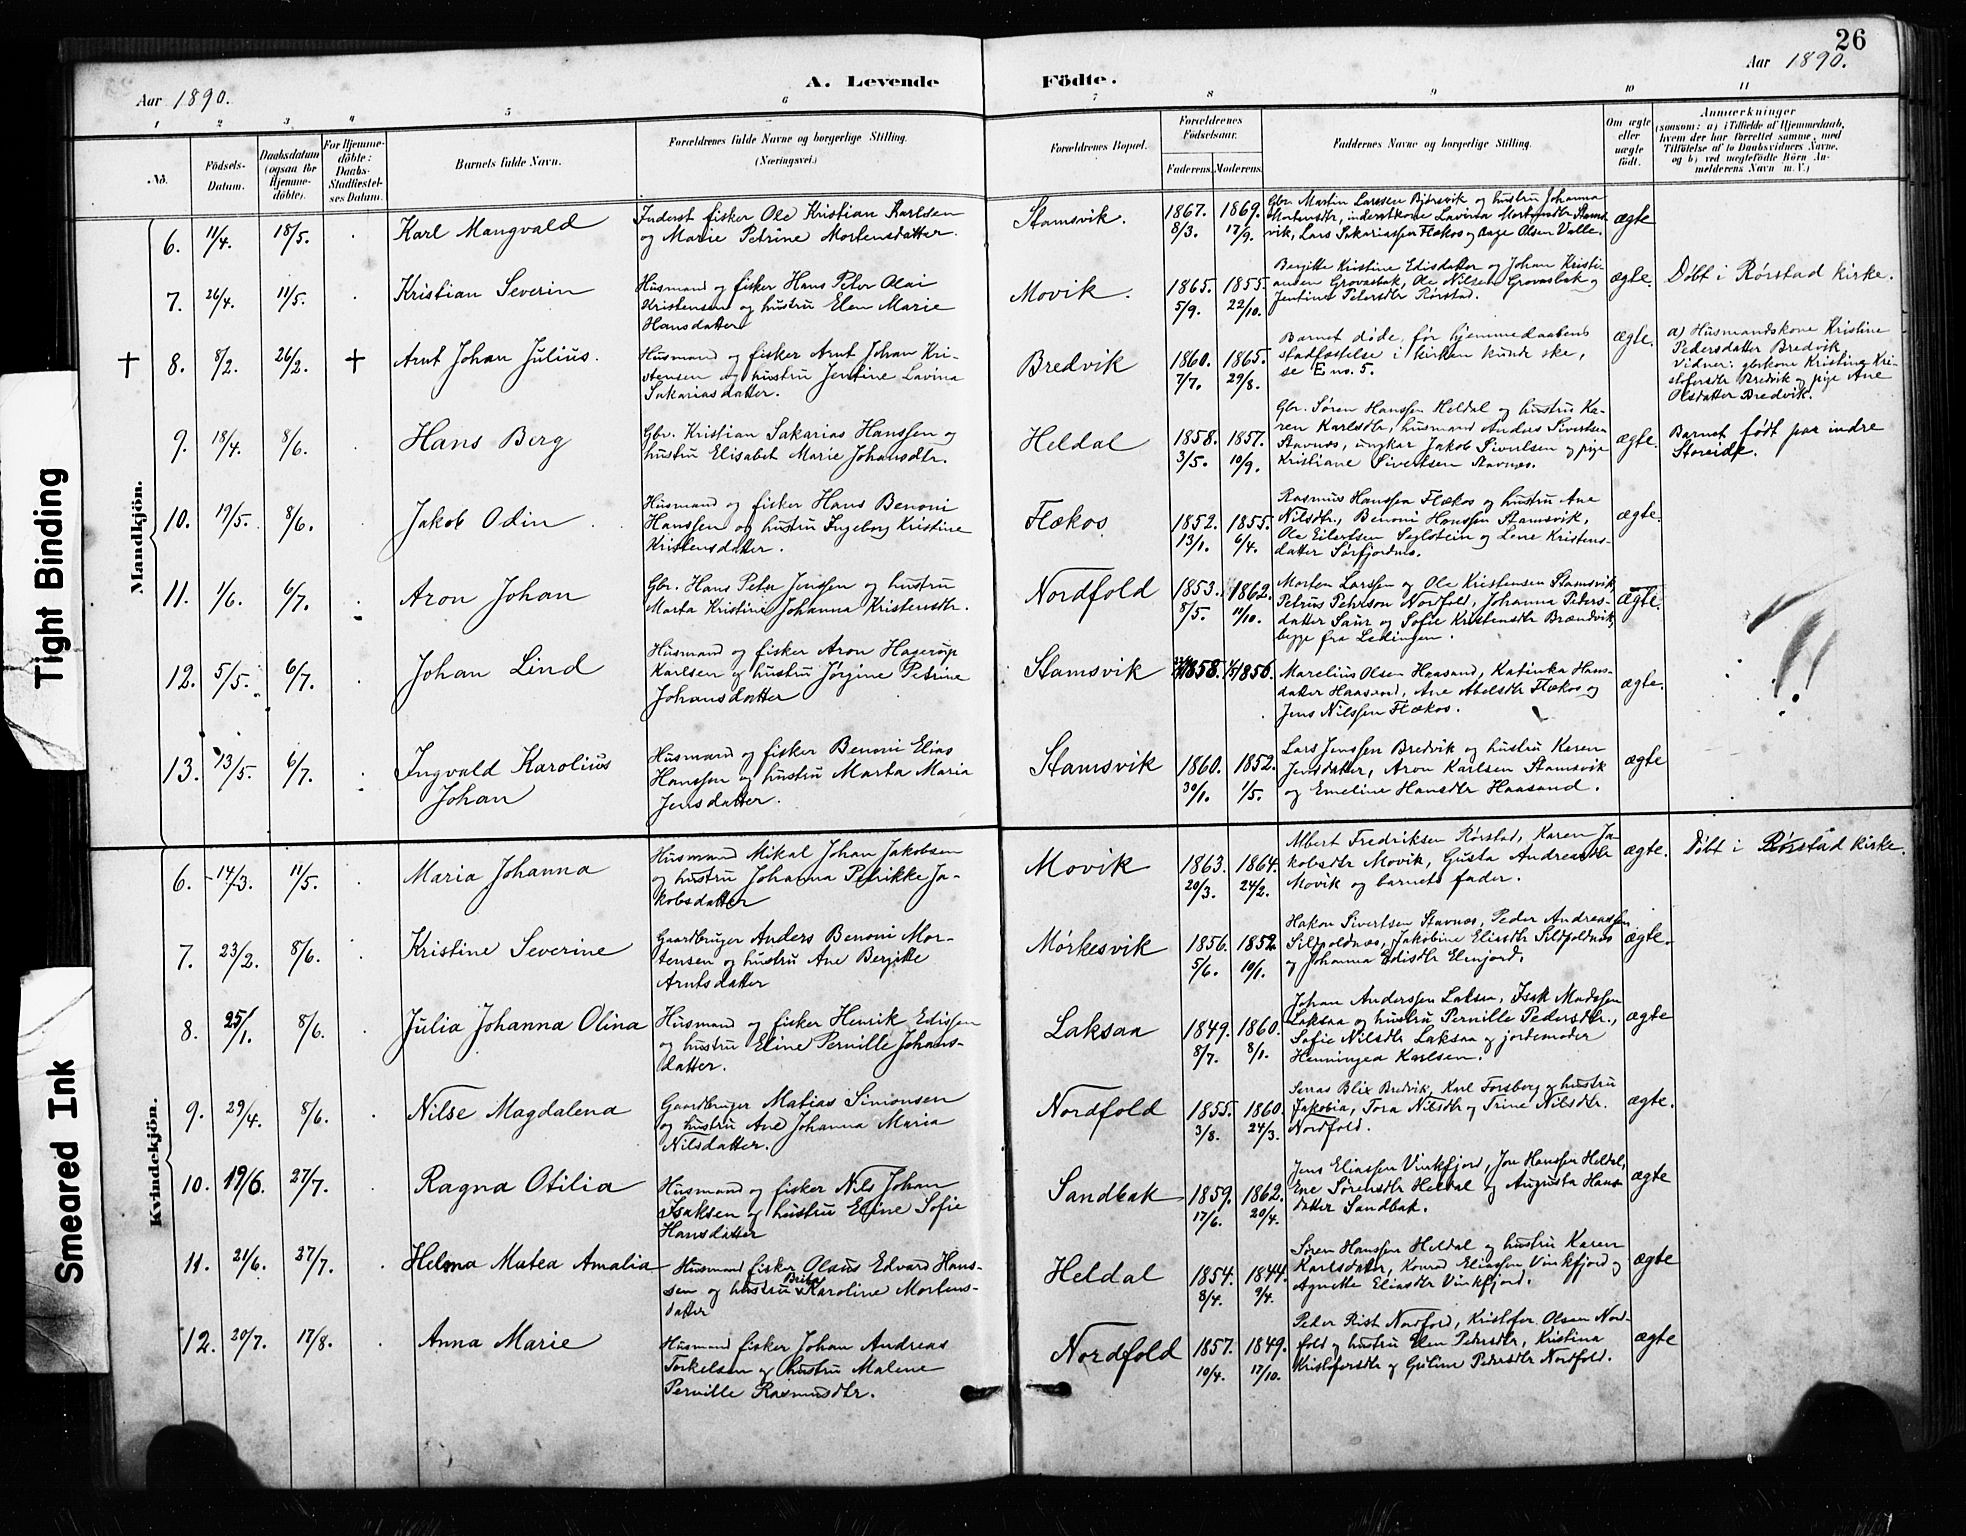 26
Aar 1890.
A. Levende Födte.
Aar 1890.
1 2 3 4 5 6 7 8 9 10 11
No.
Födsels-
Datum.
Daabsdatum
(ogsaa for
Hjemme-
döbte).
For Hjemme-
döbte:
Daabs-
Stadfæstel-
ses Datum.
Barnets fulde Navn.
Forældrenes fulde Navne og borgerlige Stilling.
(Næringsvei.)
Forældrenes Bopæl.
Forældrenes
Födselsaar.
Faderens. Moderens.
Faddernes Navne og borgerlige Stilling.
Om ægte
eller
uægte
født.
Anmærkninger
(saasom: a) i Tilfælde af Hjemmedaab,
hvem der har forrettet samme, med
Tilföielse af to Daabsvidners Navne,
og b) ved uægtefödte Börn An-
melderens Navn m. V.)
Mandkjön.
6. 11/4. 18/5. Karl Mangvald
Inderst fisker Ole Kristian Karlsen
og Marie Petrine Mortensdatter.
Stamsvik.
1867. 1869.
8/3. 17/9.
Gbr. Martin Larssen Bjørsvik og hustru Johanna
Mortensdtr, inderstkone Lavina Mortensdtr Stams-
vik, Lars Sakariassen Flækos og Aage Olsen Valle.
ægte
7. 26/4. 11/5. Kristian Severin
Husmand og fisker Hans Peter Olai
Kristensen og hustru Elen Marie
Hansdatter
Movik.
1865. 1855.
5/9. 22/10.
Bergitte Kristine Edisdatter og Johan Kristi-
ansen Grovasbak, Ole Nilsen Grovasbak og
Jentine Petersdtr Rørstad.
ægte.
Døbt i Rørstad kirke.
† 8. 8/2. 26/2. † Arnt Johan Julius.
Husmand og fisker Arnt Johan Kri-
stensen og hustru Jentine Lavina
Sakariasdatter.
Bredvik
1860. 1865.
7/7. 29/8.
Barnet døde, før hjemmedaabens
stadfæstelse i kirken kunde ske,
se E no. 5.
ægte.
a) Husmandskone Kristine
Pedersdatter Bredvik
Vidner: gbrkone Kristine Kri-
stofersdtr Bredvik og pige Ane
Olsdatter Bredvik.
9. 18/4. 8/6. Hans Berg
Gbr. Kristian Sakarias Hanssen og
hustru Elisabet Marie Johansdtr.
Heldal
1858. 1857.
3/5. 10/9.
Gbr. Søren Hanssen Heldal og hustru Ka-
ren Karlsdtr, husmand Anders Sivertsen
Stavnæs, ungkar Jakob Sivertsen og pige
Kristiane Sivertsen Stavnæs.
ægte.
Barnet født paa indre
Storeide.
10. 19/5. 8/6. Jakob Odin
Husmand og fisker Hans Benoni
Hanssen og hustru Ingeborg Kristine
Kristensdatter.
Flækos
1852. 1855.
13/1. 6/4.
Rasmus Hanssen Flækos og hustru Ane
Nilsdtr., Benoni Hanssen Stamsvik,
Ole Eilertsen Seglstein og Lene Kristens-
datter Sørfjordnes.
ægte.
11. 1/6. 6/7. Aron Johan
Gbr. Hans Peter Jenssen og hustru
Marta Kristine Johanna Kristensdtr.
Nordfold
1853. 1862.
8/5. 11/10.
Morten Larssen og Ole Kristensen Stamsvik,
Petrus Petersen Nordfold, Johanna Peders-
datter Saur og Sofie Kristensdtr Brændvik,
begge fra Lødingen.
ægte.
12. 5/5. 6/7. Johan Lind
Husmand og fisker Aron Hagerup
Karlsen og hustru Jørgine Petrine
Johansdatter
Stamsvik
1858. 1856.
Marelius Olsen Haasand, Katinka Hans-
datter Haasand, Ane Abelsdtr Flækos og
Jens Nilssen Flækos.
ægte.
13. 13/5. 6/7. Ingvald Karolius
Johan
Husmand og fisker Benoni Elias
Hanssen og hustru Marta Maria
Jensdatter.
Stamsvik
1860. 1852.
30/1. 1/5.
Lars Jenssen Bredvik og hustru Karen
Jensdatter, Aron Karlsen Stamsvik
og Emeline Hansdtr Haasand.
ægte
Kvindekjön.
6. 14/3. 11/5. Maria Johanna
Husmand Mikal Johan Jakobsen
og hustru Johanna Petrikke Ja-
kobsdatter
Movik
1863. 1864.
20/3. 24/2.
Albert Fredriksen Rørstad, Karen Ja-
kobsdtr Movik, Gusta Andreasdtr
Movik og barnets fader.
ægte.
Døbt i Rørstad kirke.
7. 23/2. 8/6. Kristine Severine
Gaardbruger Anders Benoni Mor-
tensen og hustru Ane Bergitte
Arntsdatter
Mørkesvik
1856. 1852.
5/6. 10/1.
Hakon Sivertsen Stavnæs, Peder Andreassen
Sildpoldnæs, Jakobine Eliasdtr Sildpoldnæs
og Johanna Edisdtr Elvfjord.
ægte.
8. 25/1. 8/6. Julia Johanna Olina
Husmand og fisker Henrik Edissen
og hustru Eline Pernille Johans-
datter.
Laksaa
1849. 1860.
8/7. 8/1.
Johan Anderssen Laksaa, Isak Madssen
Laksaa og hustru Pernille Pedersdtr.,
Sofie Nilsdtr Laksaa og jordemoder
Henninged Karlsen.
ægte
9. 29/4. 8/6. Nilse Magdalena
Gaardbruger Matias Simonsen
og hustru Ane Johanna Maria
Nilsdatter.
Nordfold
1855. 1860.
3/8. 24/3.
Jonas Blix Bredvik, Karl Forsberg og hustru
Jakobia, Tora Nilsdtr og Trine Nilsdtr.
Nordfold.
ægte.
10. 19/6. 27/7. Ragna Otilia
Husmand og fisker Nils Johan
Isaksen og hustru Eline Sofie
Hansdatter
Sandbak
1859. 1862.
17/6. 20/4.
Jens Eliassen Vinkfjord, Jon Hanssen Heldal,
Ene Sørensdtr Heldal og Augusta Hans-
datter Sandbak.
ægte
11. 21/6. 27/7. Helma Matea Amalia
Husmand fisker Olaus Edvard Hans-
sen og hustru Brita Karoline Mortens-
datter
Heldal
1854. 1844.
8/4. 9/4.
Søren Hanssen Heldal og hustru Karen
Karlsdatter, Konrad Eliassen Vinkfjord og
Agnette Eliasdtr Vinkfjord.
ægte
12. 20/7. 17/8. Anna Marie
Husmand fisker Johan Andreas
Torkelsen og hustru Malene
Pernille Rasmusdtr.
Nordfold
1857. 1849.
10/4. 17/10.
Peder Rist Nordfold, Kristofer Olsen Nord-
fold og hustru Elen Petersdtr, Kristina
Kristofersdtr og Guline Pedersdtr Nordfold.
ægte
Tight Binding
Smeared Ink